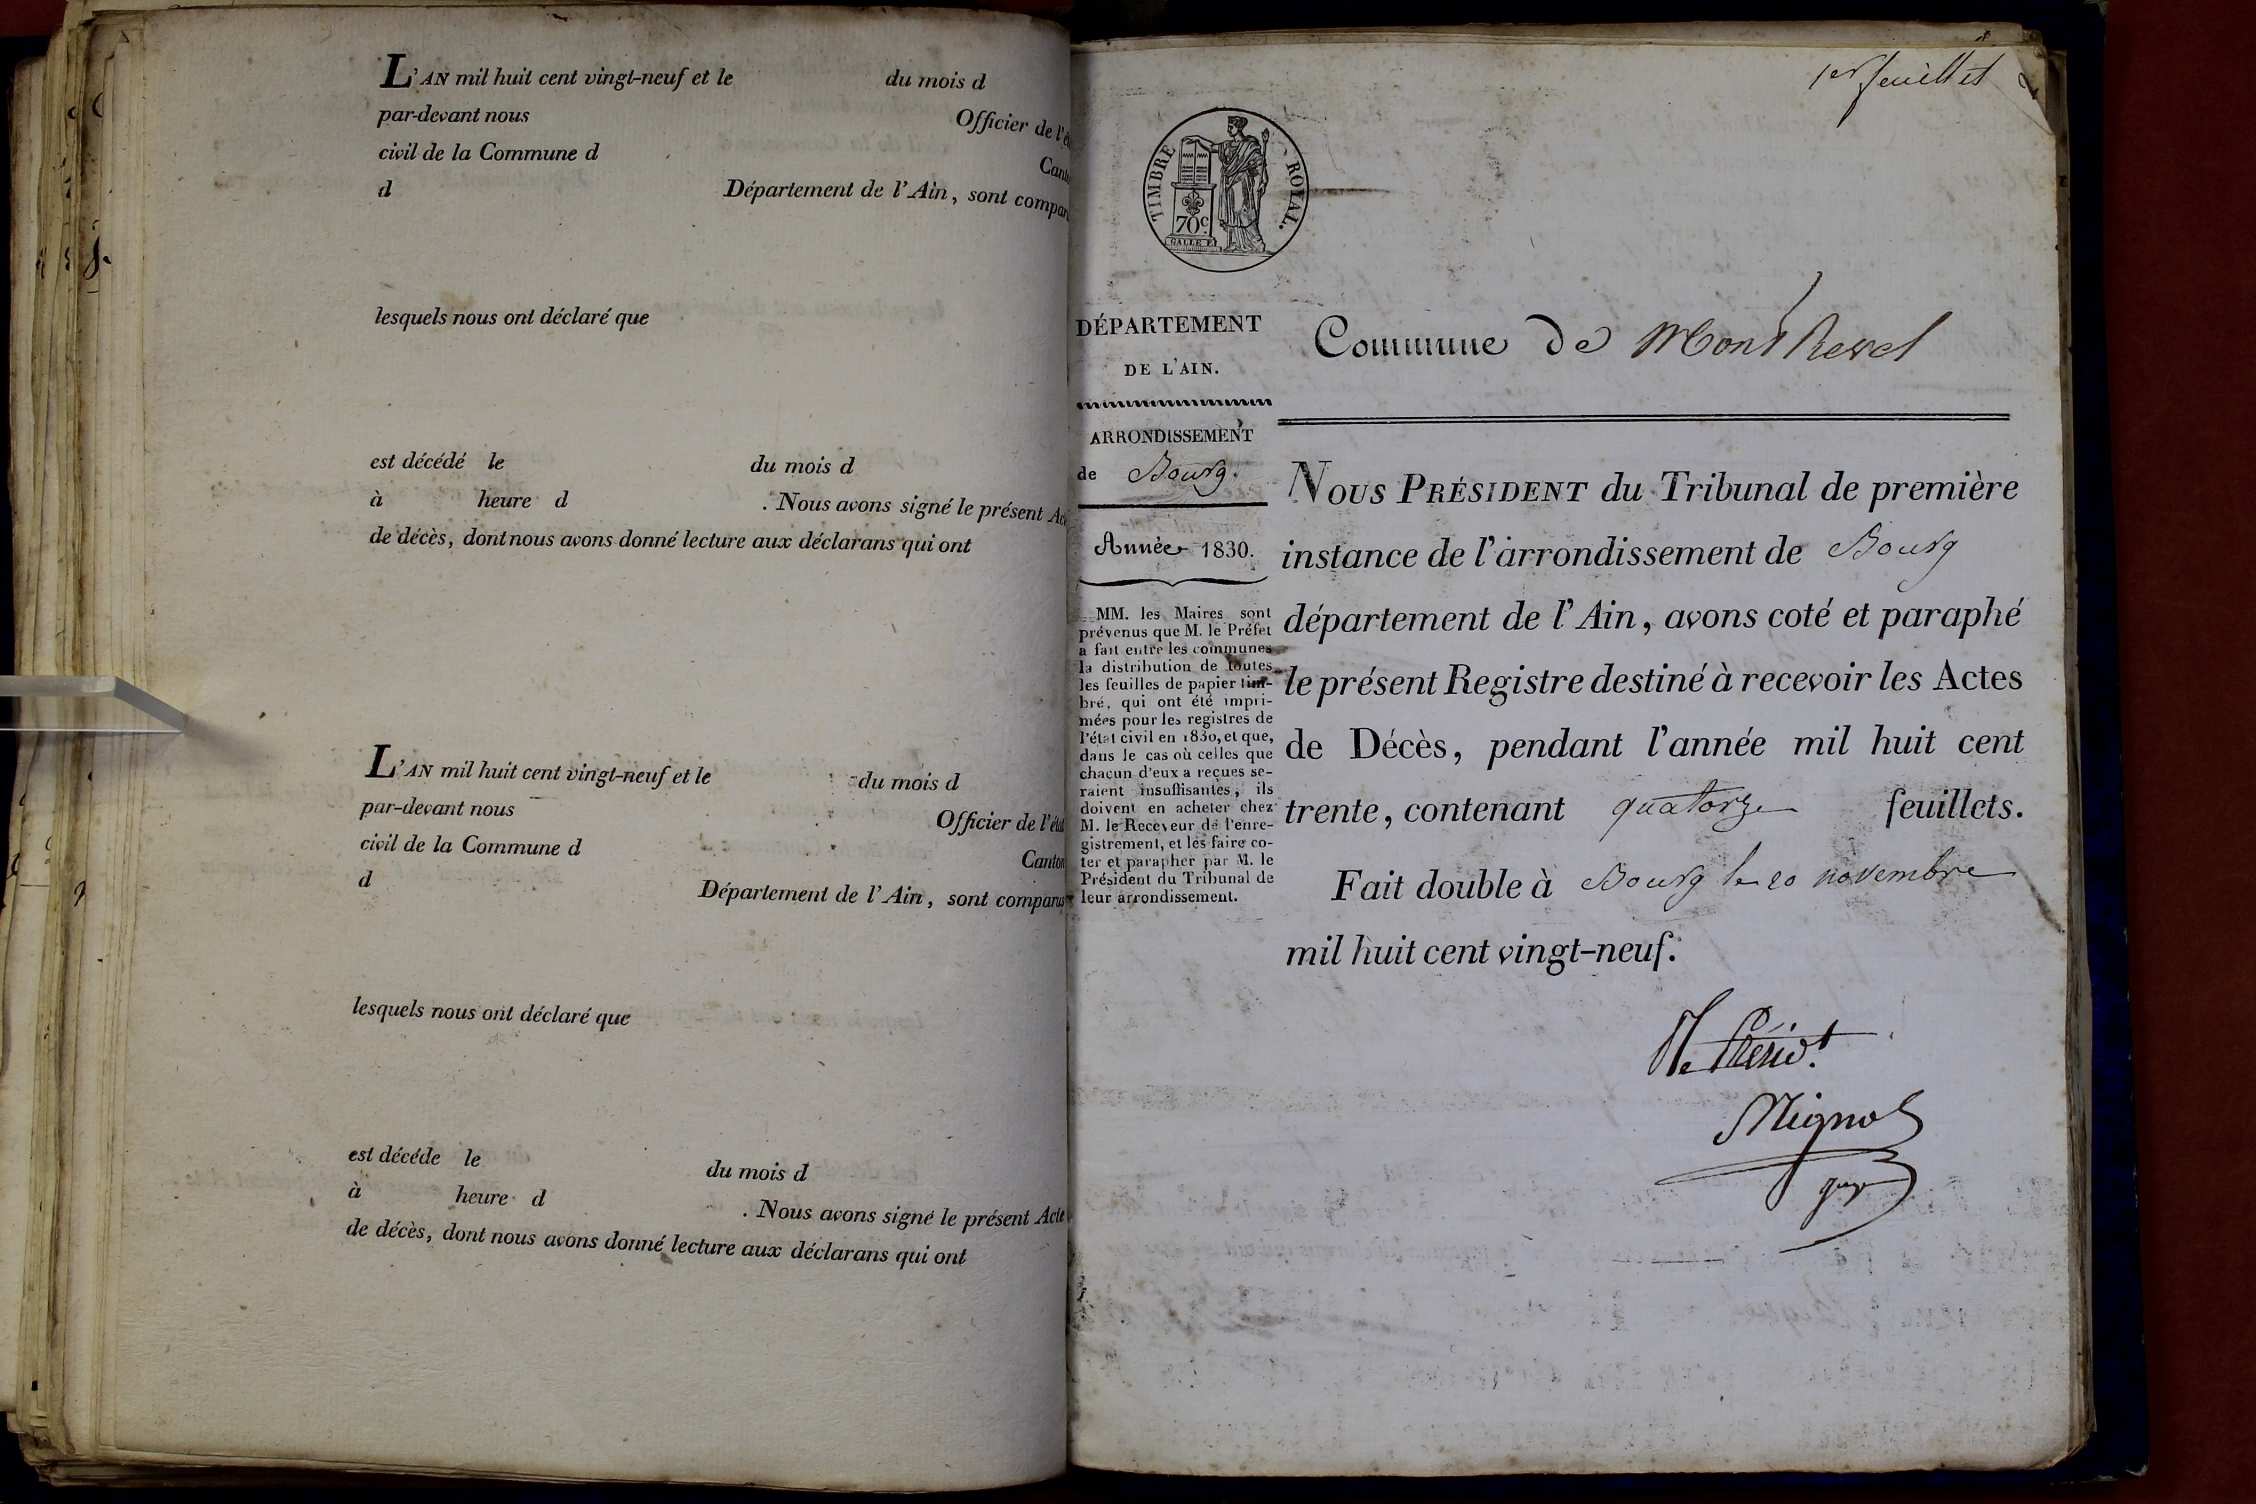 L'AN mil huit cent vingt-neuf et le du mois d
par-devant nous Officier de l'é
civil de la Commune d Cant
d Département de l'Ain, sont compar
lesquels nous ont déclaré que
est décédé le du mois d
à heure d . Nous avons signé le présent Ac
de décès, dont nous avons donné lecture aux déclarans qui ont
L'AN mil huit cent vingt-neuf et le du mois d
par-devant nous Officier de l'état
civil de la Commune d Canton
d Département de l'Ain, sont comparus
lesquels nous ont déclaré que
est décéde le du mois d
à heure d . Nous avons signé le présent Acte
de décès, dont nous avons donné lecture aux déclarans qui ont
1er feuillet
TIMBRE ROYAL.
70c
GALLE F.
DÉPARTEMENT
DE L'AIN.
ARRONDISSEMENT
de Bourg.
Année 1830.
MM. les Maires sont
prévenus que M. le Préfet
a fait entre les communes
la distribution de toutes
les feuilles de papier tim-
bré, qui ont été impri-
mées pour les registres de
l'état civil en 1830, et que,
dans le cas où celles que
chacun d'eux a reçues se-
raient insuffisantes, ils
doivent en acheter chez
M. le Receveur de l'enre-
gistrement, et les faire co-
ter et parapher par M. le
Président du Tribunal de
leur arrondissement.
Commune de Montrevel
NOUS PRÉSIDENT du Tribunal de première
instance de l'arrondissement de Bourg
département de l'Ain, avons coté et paraphé
le présent Registre destiné à recevoir les Actes
de Décès, pendant l'année mil huit cent
trente, contenant quatorze feuillets.
Fait double à Bourg le 20 novembre
mil huit cent vingt-neuf.